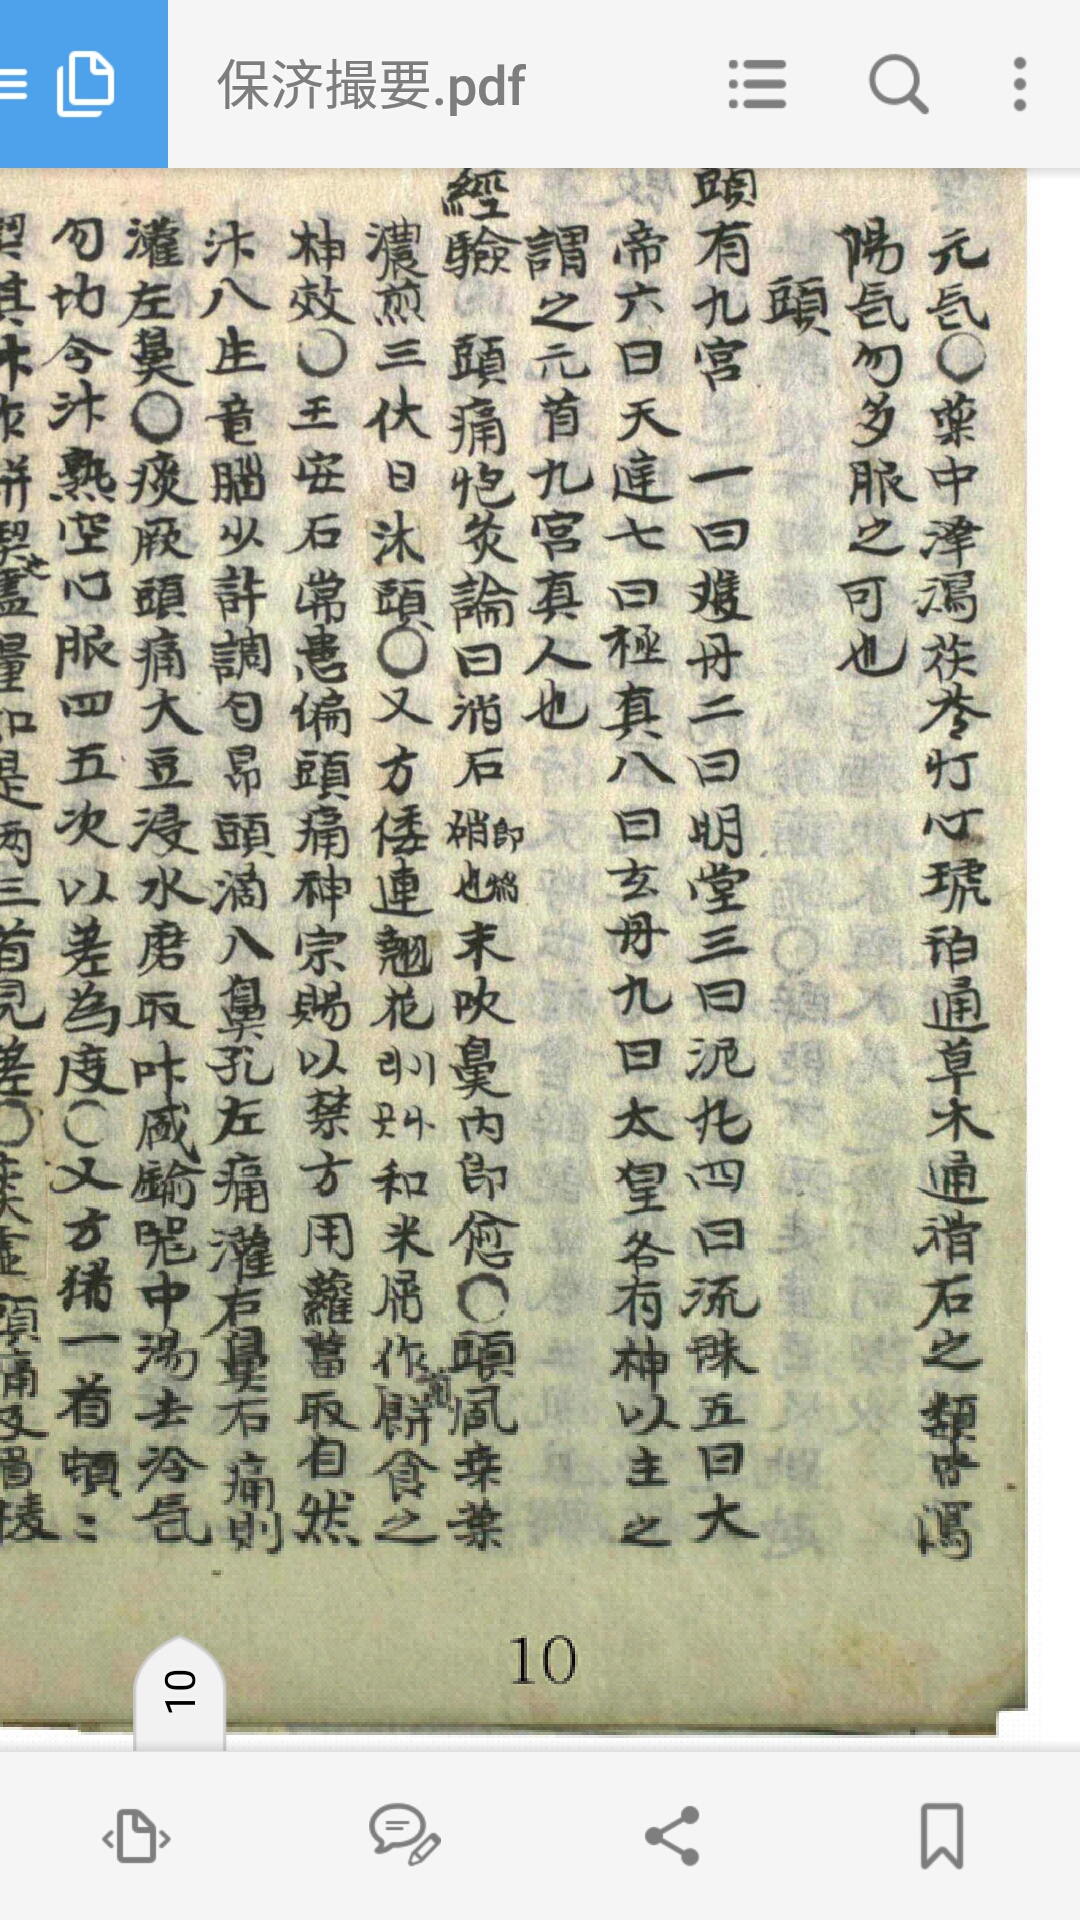 保济撮要.pdf
元气〇藥中澤瀉茯苓灯心琥珀通草木通滑石之類皆瀉
陽气勿多服之可也
頭
頭有九宮 一曰雙丹二曰明堂三曰泥丸四曰流珠五曰大
帝六曰天庭七曰極真八曰玄丹九曰太皇各有神以主之
謂之元首九宮真人也
經驗 頭痛炮灸論曰消石 即焰硝也 末吹鼻內即愈〇頭風桒葉
濃煎三伏日沐頭〇又方倭連翹花 和米屑作餅食之
神效〇王安石常患偏頭痛神宗賜以禁方用蘿葍取自然
汁入生竜腦少許調勻昂頭滴入鼻孔左痛灌右鼻右痛則
灌左鼻〇痰厥頭痛大豆浸水磨取汁盛鍮碗中湯去冷气
勿切令汁熟空心服四五次以差為度〇又方猪一首頓〻
10
10